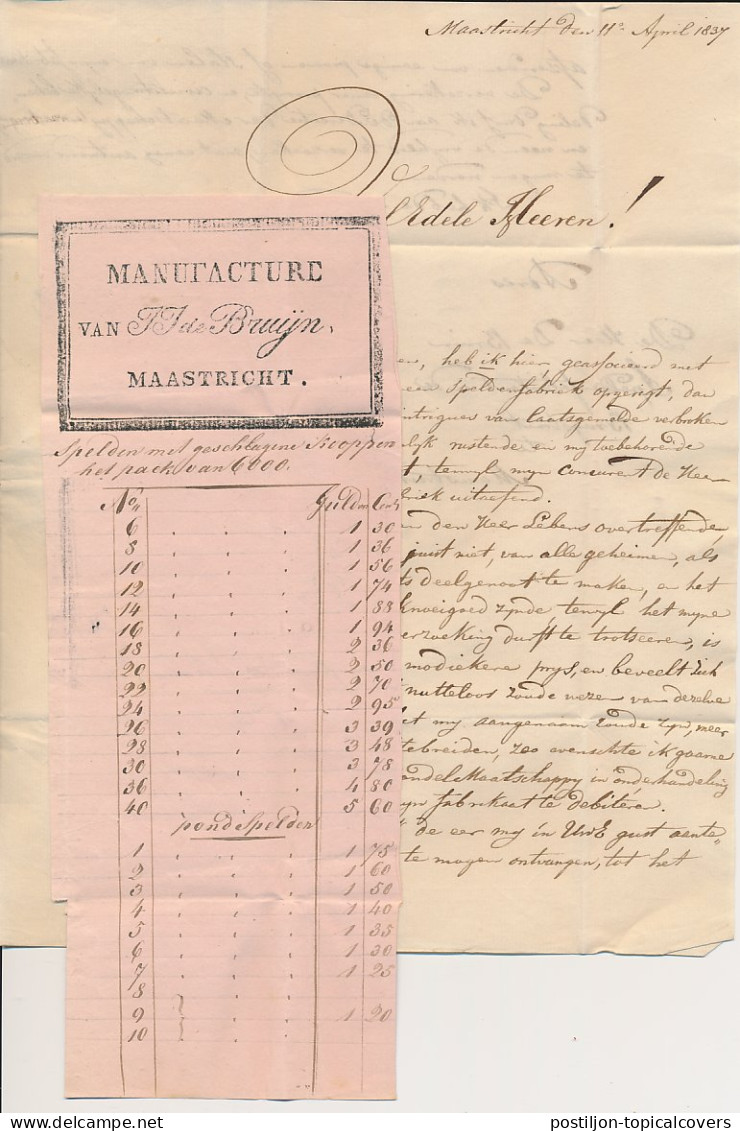 Maastricht den 11e April 1837
Edele Heeren!
MANUFACTURE
VAN J J de Bruijn,
MAASTRICHT.
Spelden met geschlagene Knoppen
het pack van 6000.
No Gulden Cent
6 1 30
8 1 36
10 1 56
12 1 74
14 1 88
16 1 94
18 2 36
20 2 50
22 2 70
24 2 95
26 3 39
28 3 48
30 3 78
36 4 80
40 5 60
pond Spelden
1 1 75
2 1 60
3 1 50
4 1 40
5 1 35
6 1 30
7 1 25
8
9 1 20
10
heb ik hier, geassocieerd met
een Speldenfabriek opgerigt, dan
intriguen van laatsgemelde verbroken
rustende en my toebehorende
terwyl myn Concurent de Heer
uitoefend.
den Heer Lebens overtreffende,
juist niet, van alle geheimen, als
deelgenoot te maken, en het
knoeigoed zynde, terwyl het myne
durft te trotseeren, is
modiekere prys, en beveelt Zich
nutteloos zoude wezen van dezelve
my aangenaam zoude zyn, meer
zoo wenschte ik gaerne
Maatschappy in onderhandeling
fabrikaat te debiteren.
de eer my in UwE gust aante
te mogen ontvangen, tot het
postiljon-topicalcovers postiljon-topicalcovers.com